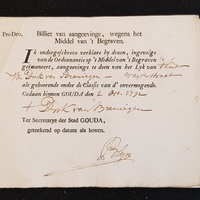 Pro-Deo.
Billiet van aangeevinge, wegens het
Middel van 't Begraven.
IK ondergeschreve verklare by dezen, ingevolge
van de Ordonnantie op 't Middel van 't Begraven
geëmaneert, aangeevinge te doen van het Lyk van
van Dirk van
als gehoorende onder de Classis van d' onvermogende.
Gedaan binnen GOUDA, den 2 Oct. 1792
Dirk van
Ter Secretarye der Stad GOUDA,
geteekend op datum als boven.